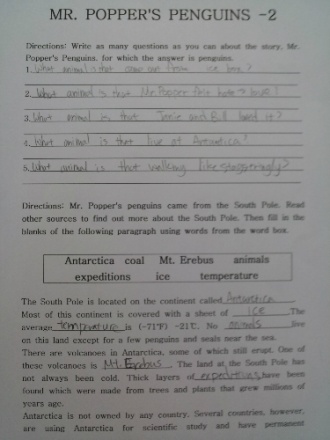 MR. POPPER'S PENGUINS -2
Directions: Write as many questions as you can about the story, Mr.
Popper's Penguins, for which the answer is penguins.
1. What animal is that come out from ice box?
2. What animal is that Mr. Popper
3. What animal is that Janie and Bill
4. What animal is that live at Antarctica?
5. What animal is that walking like staggeringly?
Directions: Mr. Popper's penguins came from the South Pole. Read
other sources to find out more about the South Pole. Then fill in the
blanks of the following paragraph using words from the word box.
Antarctica coal Mt. Erebus animals
expeditions ice temperature
The South Pole is located on the continent called Antarctica
Most of this continent is covered with a sheet of ice. The
average temprature is (-71°F) -21℃. No animals live
on this land except for a few penguins and seals near the sea.
There are volcanoes in Antarctica, some of which still erupt. One of
these volcanoes is Mt. Erebus. The land at the South Pole has
not always been cold. Thick layers of expeditions have been
found which were made from trees and plants that grew millions of
years ago.
Antarctica is not owned by any country. Several countries, however,
are using Antarctica for scientific study and have permanent